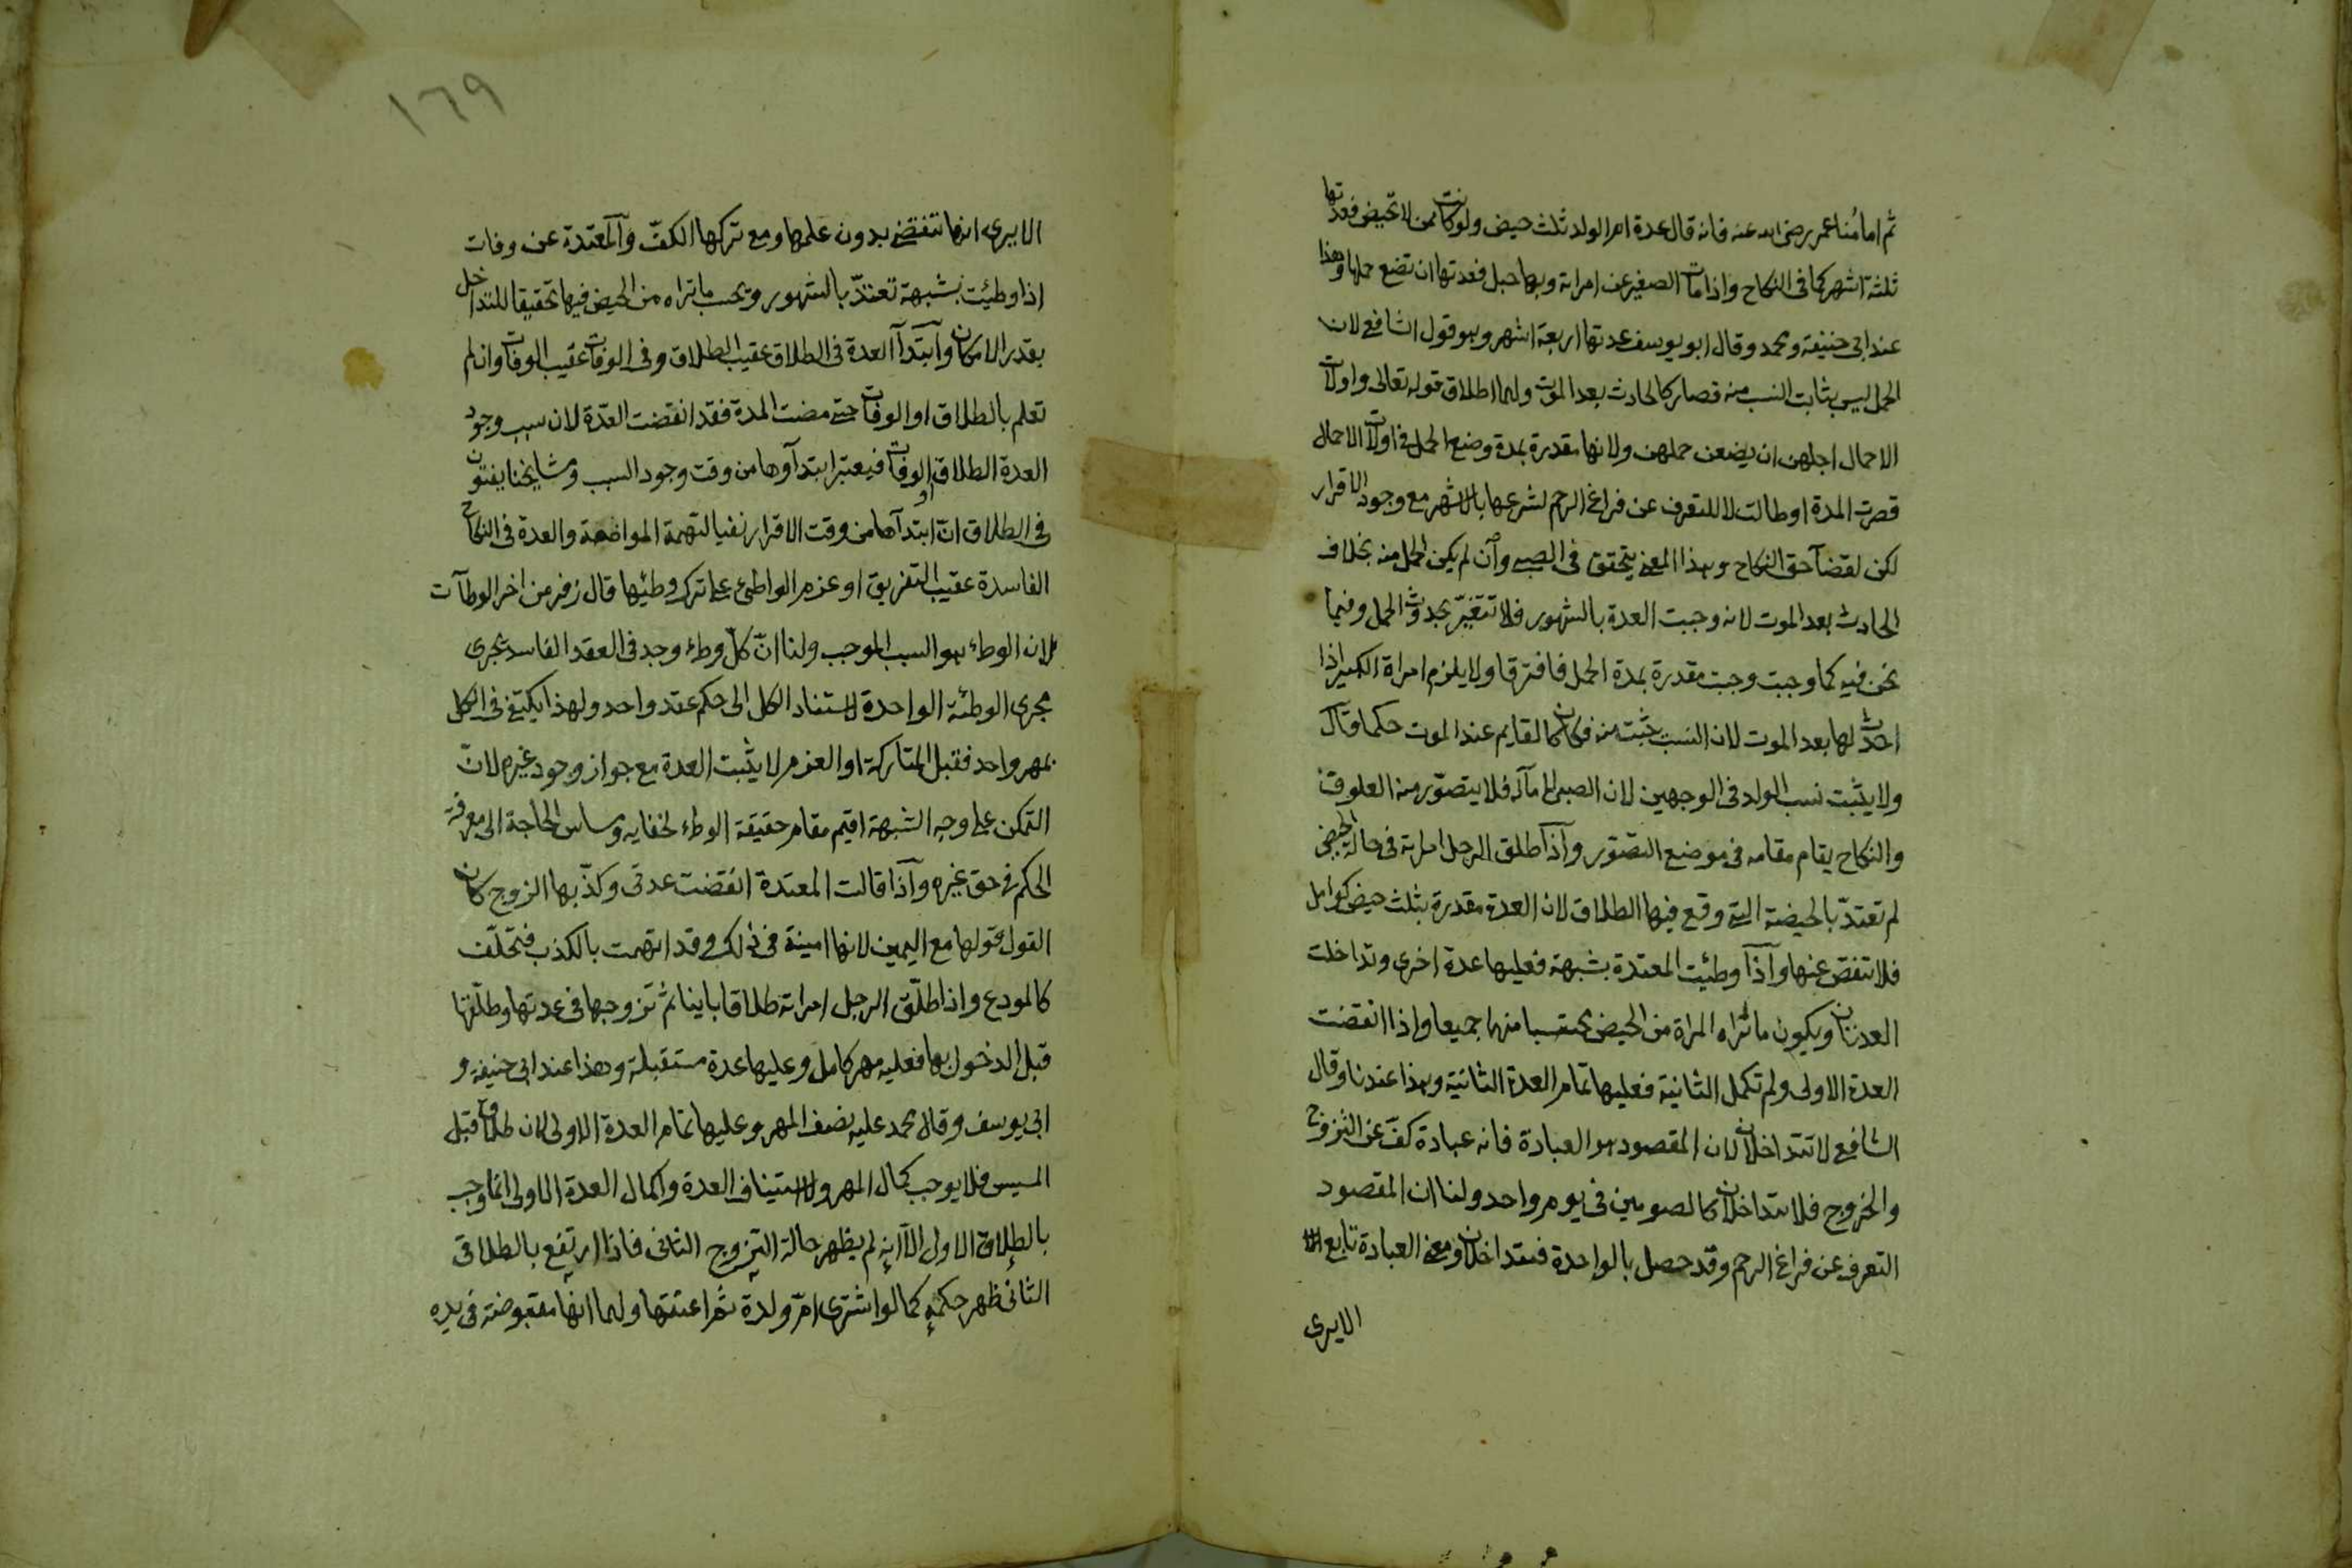 ثم امامنا عمر رضى الله عنه فانه قال عدة ام الولد ثلث حيض ولو كانت ممن لا تحيض فعدتها
ثلثة اشهر كما فى النكاح واذا مات الصغير عن امراته وبها حبل فعدتها ان تضع حملها وهذا
عند ابى حنيفة ومحمد وقال ابو يوسف عدتها اربعة اشهر وهو قول الشافعى لان
الحمل ليس بثابت النسب منه فصار كالحادث بعد الموت ولهما اطلاق قوله تعالى واولات
الاحمال اجلهن ان يضعن حملهن ولانها مقدرة بمدة وضع الحمل فى اولات الاحمال
قصرت المدة او طالت لا للتعرف عن فراغ الرحم لشرعها بالاشهر مع وجود الاقرار
لكن لقضآ حق النكاح وهذا المعنى يتحقق فى الصبى وان لم يكن الحمل منه بخلاف
الحادث بعد الموت لانه وجبت العدة بالشهور فلا تتغير بحدوث الحمل وفيما
نحن فيه كما وجبت وجبت مقدرة بمدة الحمل فافترقا ولا يلزم امراة الكبير اذا
احدث لها بعد الموت لان النسب يثبت منه فكان كالقايم عند الموت حكما وقال
ولا يثبت نسب الولد فى الوجهين لان الصبى لا مآله فلا يتصور منه العلوق
والنكاح يقام مقامه فى موضع التصور وآذا طلق الرجل امراته فى حالة الحيض
لم تعتد بالحيضة التى وقع فيها الطلاق لان العدة مقدرة بثلث حيض كوامل
فلا تنقص عنها وآذا وطئت المعتدة بشبهة فعليها عدة اخرى وتداخلت
العدتان ويكون ما تراه المراة من الحيض محتسبا منهما جميعا واذا انقضت
العدة الاولى ولم تكمل الثانية فعليها تمام العدة الثانية وهذا عندنا وقال
الشافعى لا تتداخلان لان المقصود هو العبادة فانه عبادة كف عن التزوج
والخروج فلا تتداخلان كالصومين فى يوم واحد ولنا ان المقصود
التعرف عن فراغ الرحم وقد حصل بالواحدة فتتداخلان ومعنى العبادة تابع
الايرى
١٦٩
الايرى انها تنقضى بدون علمها ومع تركها الكف وآلمعتدة عن وفات
اذا وطئت بشبهة تعتد بالشهور وتحسب ما تراه من الحيض فيها تحقيقا للتداخل
بقدر الامكان وآبتدآ العدة فى الطلاق عقيب الطلاق وفى الوفات عقيب الوفات وان لم
تعلم بالطلاق او الوفات حتى مضت المدة فقد انقضت العدة لان سبب وجود
العدة الطلاق او الوفات فيعتبر ابتدآوها من وقت وجود السبب ومشايخنا يفتون
فى الطلاق ان ابتدآها من وقت الاقرار نفيا لتهمة المواضعة والعدة فى النكاح
الفاسدة عقيب التفريق او عزم الواطئ على ترك وطئها قال زفر من اخر الوطآت
لان الوطء هو السبب الموجب ولنا ان كل وطء وجد فى العقد الفاسد يجرى
مجرى الوطئة الواحدة لاستناد الكل الى حكم عقد واحد ولهذا يكتفى فى الكل
بمهر واحد فقبل المتاركة او العزم لا يثبت العدة مع جواز وجود غيره لان
التمكن على وجه الشبهة اقيم مقام حقيقة الوطء لخفايه ومساس الحاجة الى معرفة
الحكم فى حق غيره وآذا قالت المعتدة انقضت عدتى وكذبها الزوج كان
القول قولها مع اليمين لانها امينة فى ذلك وقد اتهمت بالكذب فتحلف
كالمودع واذا طلق الرجل امراته طلاقا باينا ثم تزوجها فى عدتها وطلقها
قبل الدخول بها فعليه مهر كامل وعليها عدة مستقبلة وهذا عند ابى حنيفة و
ابى يوسف وقال محمد عليه نصف المهر وعليها تمام العدة الاولى لان طلاق قبل
المسيس فلا يوجب كمال المهر ولا استيناف العدة واكمال العدة الاولى انما وجب
بالطلاق الاول الا انه لم يظهر حالة التزوج الثانى فاذا ارتفع بالطلاق
الثانى ظهر حكمه كما لو اشترى ام ولدة ثم اعتقها ولهما انها مقبوضة فى يده